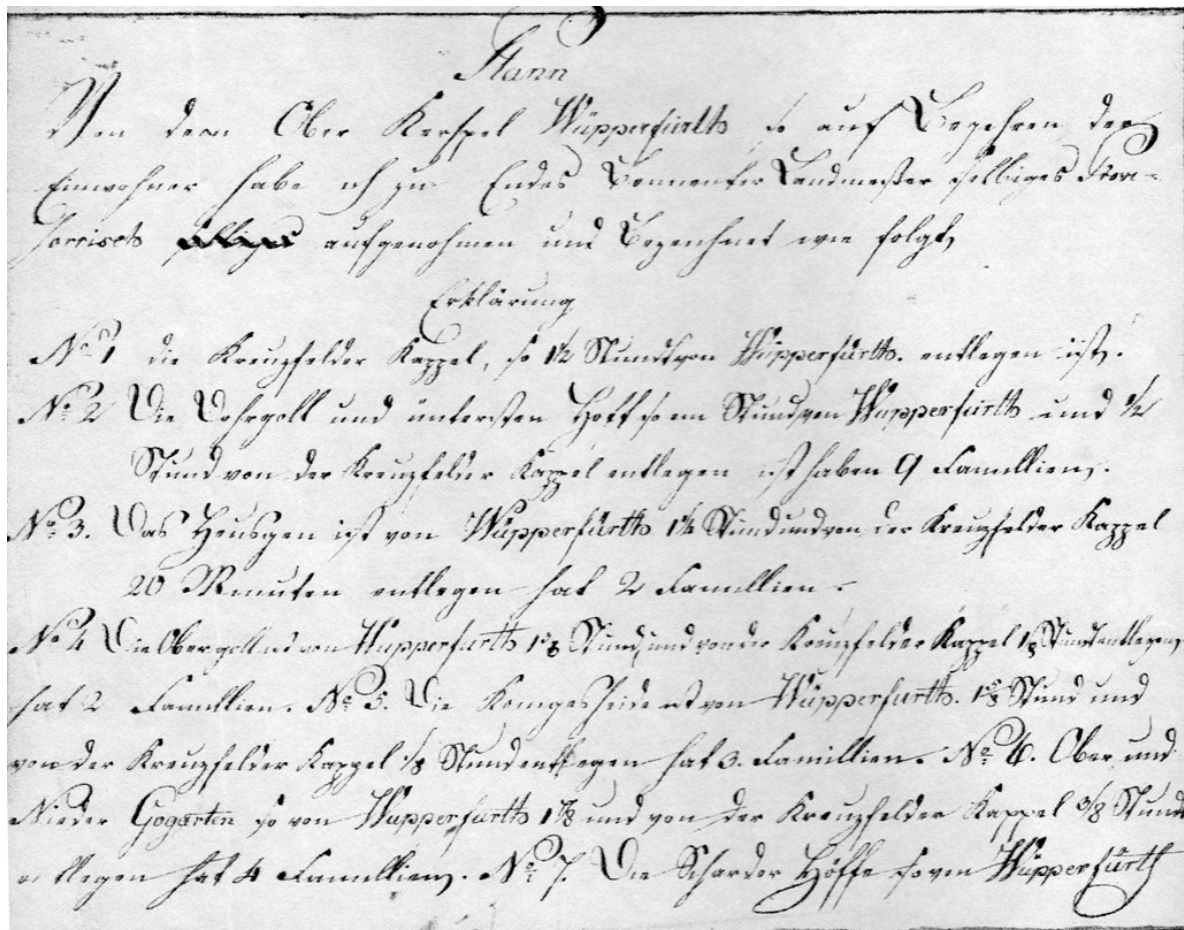 Plann
Von dem Ober Kerspel Wüpperfürth so auf Begehren der
Einwohner habe ich zu Endes Bennenter Landmesser selbiges
aufgenohmen und Bezeichnet wie folgt,
Erklärung
No. 1 die Kreuzfelder Kappel, so 1½ Stund von Wüpperfürth. entlegen ist.
No. 2 Die Dohrgoll und üntersten Hoff so ein Stund von Wupperfürth und ½
Stund von der Kreuzfelder Kappel entlegen ist haben 9 Famillien.
No. 3. Das Heusgen ist von Wüpperfürth 1¼ Stund und von der Kreuzfelder Kappel
20 Minuten entlegen hat 2 Famillien.
No 4 Die Obergoll ist von Wupperfurth Stund und von der Kreuzfelder Kappel Stund entlegen,
hat 2 Famillien. No. 5. Die Konigesheide ist von Wüpperfurth. 1⅝ Stund und
von der Kreuzfelder Kappel ⅛ Stund entlegen hat 3. Famillien. No. 6. Ober und
Nieder Gogarten so von Wupperfurth und von der Kreuzfelder Kappel ⅜ Stund
entlegen hat 4 Famillien. No. 7. Die Scharder Höffe so von Wüpperfürth